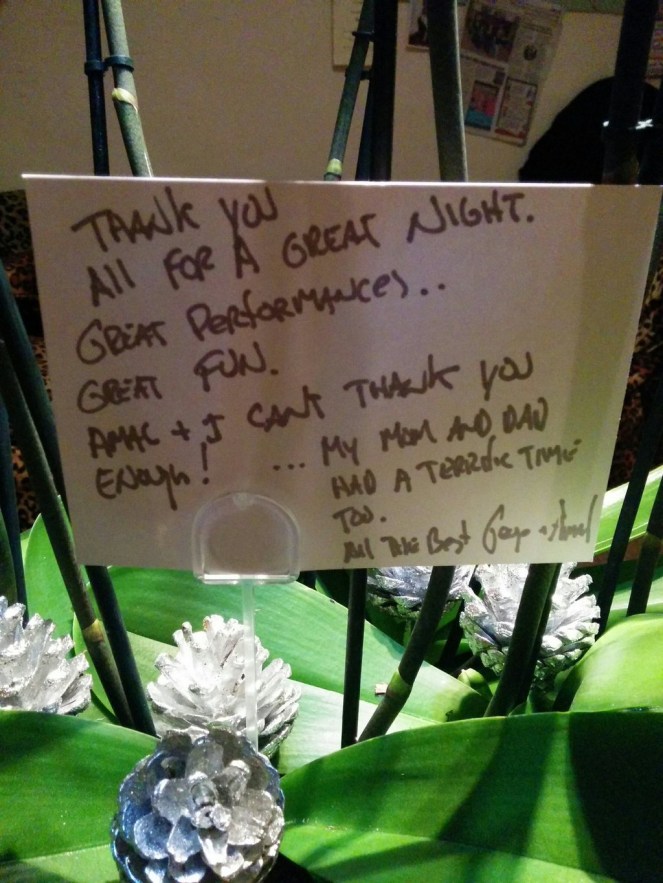 THANK YOU
All FOR A GREAT NIGHT.
GREAT PERFORMANCES..
GREAT FUN.
AMAL + I CANT THANK YOU
ENOUGH!
... MY MOM AND DAD
HAD A TERRIFIC TIME
TOO.
All THE BEST